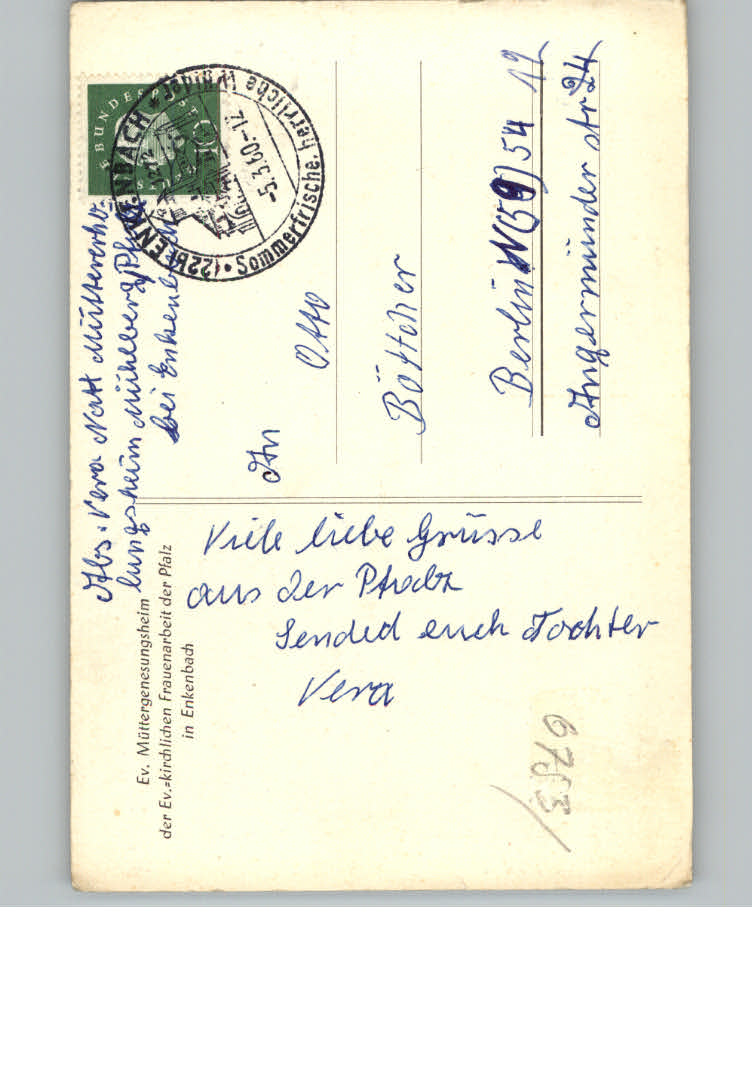 Abs. Vera Natt Müttererho-
lungsheim Mühlberg Pfalz
bei Enkenb
BUNDESPOST
(22b) ENKENBACH
Sommerfrische, herrliche Wälder
-5.3.60.-12
An
Otto
Böttcher
Berlin N 54
Angermünder str 24
Ev. Müttergenesungsheim
der Ev.=kirchlichen Frauenarbeit der Pfalz
in Enkenbach
Viele liebe Grüsse
aus der Pfalz
Sended euch Tochter
Vera
6753